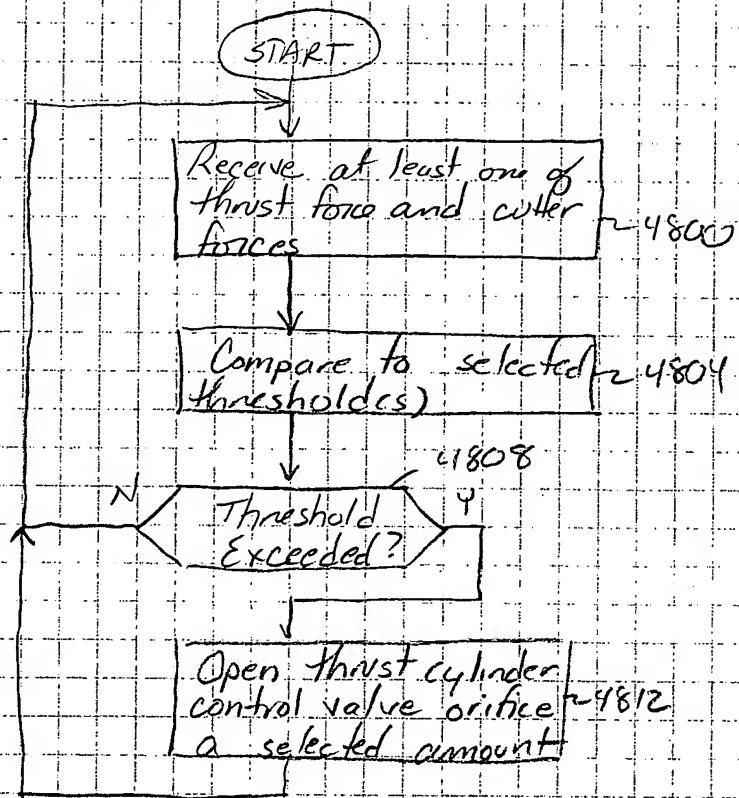 START.
Receive at least one of
thrust force and cutter
forces
~4800
Compare to selected
threshold(s)
~4804
4808
N
Y
Threshold
Exceeded?
Open thrust cylinder
control valve orifice
a selected amount
~4812